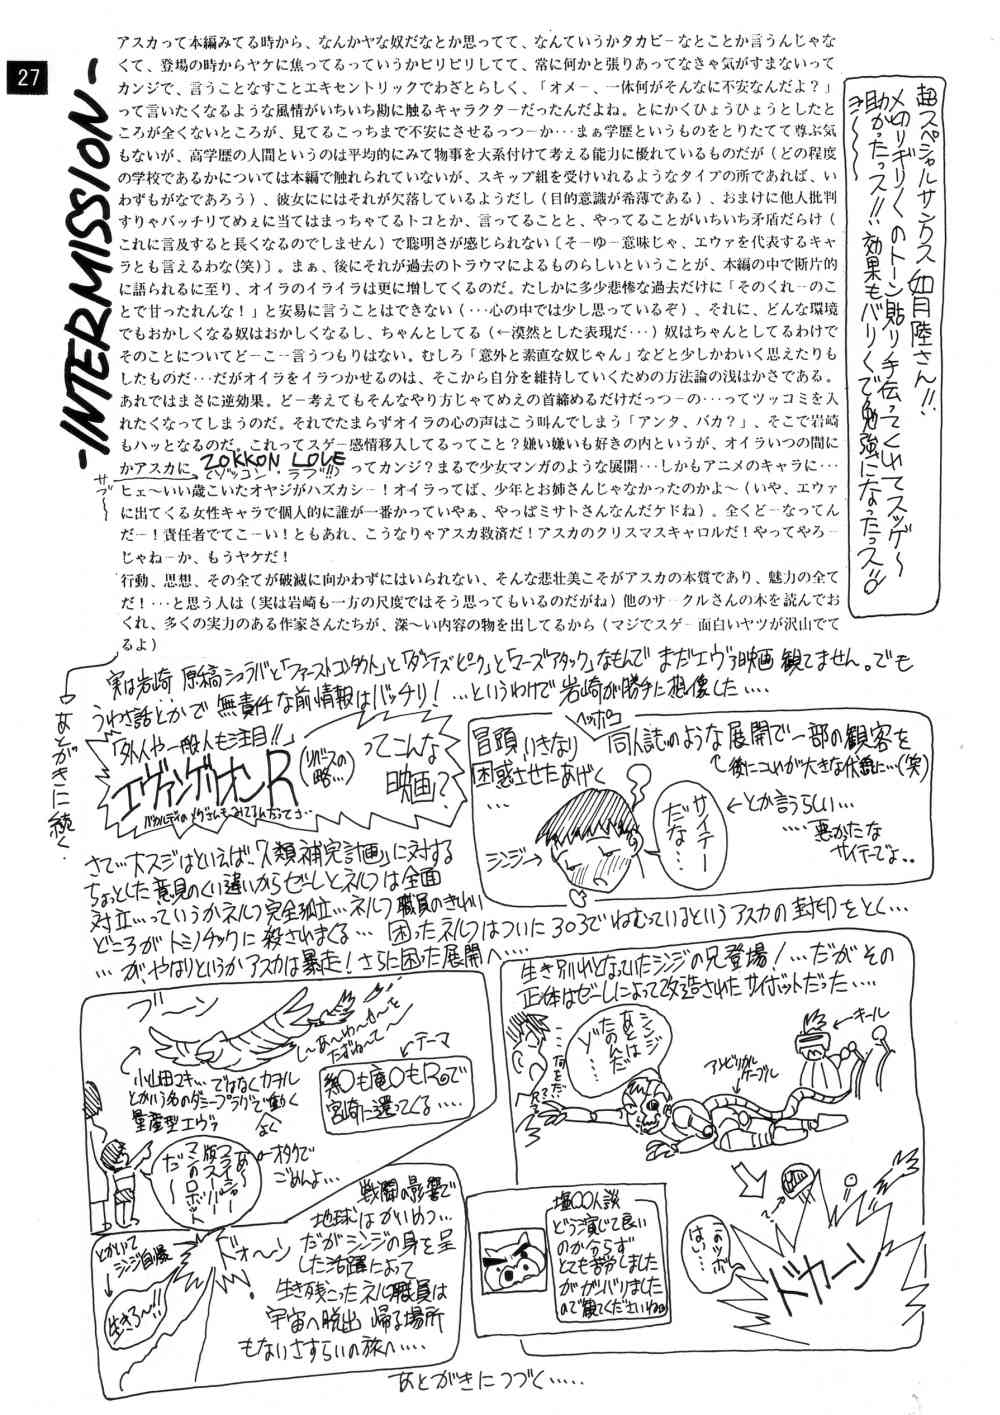 27
-INTERMISSION-
アスカって本編みてる時から、なんかヤな奴だなとか思ってて、なんていうかタカビーなとことか言うんじゃな
くて、登場の時からヤケに焦ってるっていうかピリピリしてて、常に何かと張りあってなきゃ気がすまないって
カンジで、言うことなすことエキセントリックでわざとらしく、「オメー、一体何がそんなに不安なんだよ？」
って言いたくなるような風情がいちいち勘に触るキャラクターだったんだよね。とにかくひょうひょうとしたと
ころが全くないところが、見てるこっちまで不安にさせるっつーか…まぁ学歴というものをとりたてて尊ぶ気
もないが、高学歴の人間というのは平均的にみて物事を大系付けて考える能力に優れているものだが（どの程度
の学校であるかについては本編で触れられていないが、スキップ組を受けいれるようなタイプの所であれば、い
わずもがなであろう）、彼女ににはそれが欠落しているようだし（目的意識が希薄である）、おまけに他人批判
すりゃバッチリてめぇに当てはまっちゃてるトコとか、言ってることと、やってることがいちいち矛盾だらけ（
これに言及すると長くなるのでしません）で聡明さが感じられない〔そーゆー意味じゃ、エヴァを代表するキャ
ラとも言えるわな(笑)〕。まぁ、後にそれが過去のトラウマによるものらしいということが、本編の中で断片的
に語られるに至り、オイラのイライラは更に増してくるのだ。たしかに多少悲惨な過去だけに「そのくれーのこ
とで甘ったれんな！」と安易に言うことはできない（…心の中では少し思っているぞ）、それに、どんな環境
でもおかしくなる奴はおかしくなるし、ちゃんとしてる（←漠然とした表現だ…）奴はちゃんとしてるわけで
そのことについてどーこー言うつもりはない。むしろ「意外と素直な奴じゃん」などと少しかわいく思えたりも
したものだ…だがオイラをイラつかせるのは、そこから自分を維持していくための方法論の浅はかさである。
あれではまさに逆効果。どー考えてもそんなやり方じゃてめえの首締めるだけだっつーの…ってツッコミを入
れたくなってしまうのだ。それでたまらずオイラの心の声はこう叫んでしまう「アンタ、バカ？」、そこで岩崎
もハッとなるのだ。これってスゲー感情移入してるってこと？嫌い嫌いも好きの内というが、オイラいつの間に
かアスカに ZOKKON LOVE ってカンジ？まるで少女マンガのような展開…しかもアニメのキャラに…
でゾッコン ラブ!!
サブ〜
ヒェ〜いい歳こいたオヤジがハズカシー！オイラってば、少年とお姉さんじゃなかったのかよ〜（いや、エヴァ
に出てくる女性キャラで個人的に誰が一番かっていやぁ、やっぱミサトさんなんだケドね）。全くどーなってん
だー！責任者でてこーい！ともあれ、こうなりゃアスカ救済だ！アスカのクリスマスキャロルだ！やってやろー
じゃねーか、もうヤケだ！
行動、思想、その全てが破滅に向かわずにはいられない、そんな悲壮美こそがアスカの本質であり、魅力の全て
だ！…と思う人は（実は岩崎も一方の尺度ではそう思ってもいるのだがね）他のサークルさんの本を読んでお
くれ、多くの実力のある作家さんたちが、深〜い内容の物を出してるから（マジでスゲー面白いヤツが沢山でて
るよ）
→あとがきに続く.
超スペシャルサンクス 如月陸さん!!
〆切りギリギリのトーン貼り手伝ってくれてスッゲ〜
助かったっス!! 効果もバリバリで勉強になったっス
実は岩崎 原稿シュラバと「ファーストコンタクト」と「ダンテズピーク」と「マーズアタック」なもんで まだエヴァ映画観てません。でも
うわさ話とかで 無責任な前情報はバッチリ! …というわけで岩崎が勝手に想像した….
「外人や一般人も注目!!」
エヴァンゲリオンR
(リバースの略…)
ってこんな
映画?
冒頭いきなり ヘッポコ同人誌のような展開で一部の観客を
困惑させたあげく…
後にコレが大きな伏線に…(笑)
シンジ→
サイテーだな…
←とか言うらしい…
….悪かたな
サイテーでよ..
さて…大スジはといえば「人類補完計画」に対する
ちょっとした意見のくい違いからゼーレとネルフは全面
対立…っていうかネルフ完全孤立…ネルフ職員のきれい
どころがトミノチックに殺されまくる… 困ったネルフはついに303でねむっているというアスカの封印をとく…
…が、やはりというかアスカは暴走! さらに困った展開へ….
ブーン
小山田マキ…ではなくカヲル
とかいう名のダミープラグで動く
量産型エヴァ
←テーマ
宮崎に還ってくる….
←オタクで
ごめんよ…
とかいて
シンジ自爆
生きろ〜!!
ドォーン
戦闘の影響で
地球はかいめつ…
だがシンジの身を呈
した活躍によって
生き残ったネルフ職員は
宇宙へ脱出 帰る場所
もないさすらいの旅へ….
生き別れとなっていたシンジの兄登場!…だがその
正体はゼーレによって改造されたサイボットだった….
シンジ
あとは
たのんだ
ゾ…
←キール
アンビリカル
ケーブル
塩〇〇人談
どう演じて良い
のか分らず
とても苦労しました
がガンバリました
ので観てくださいね
このツボ
はい…
ドカーン
あとがきにつづく…..